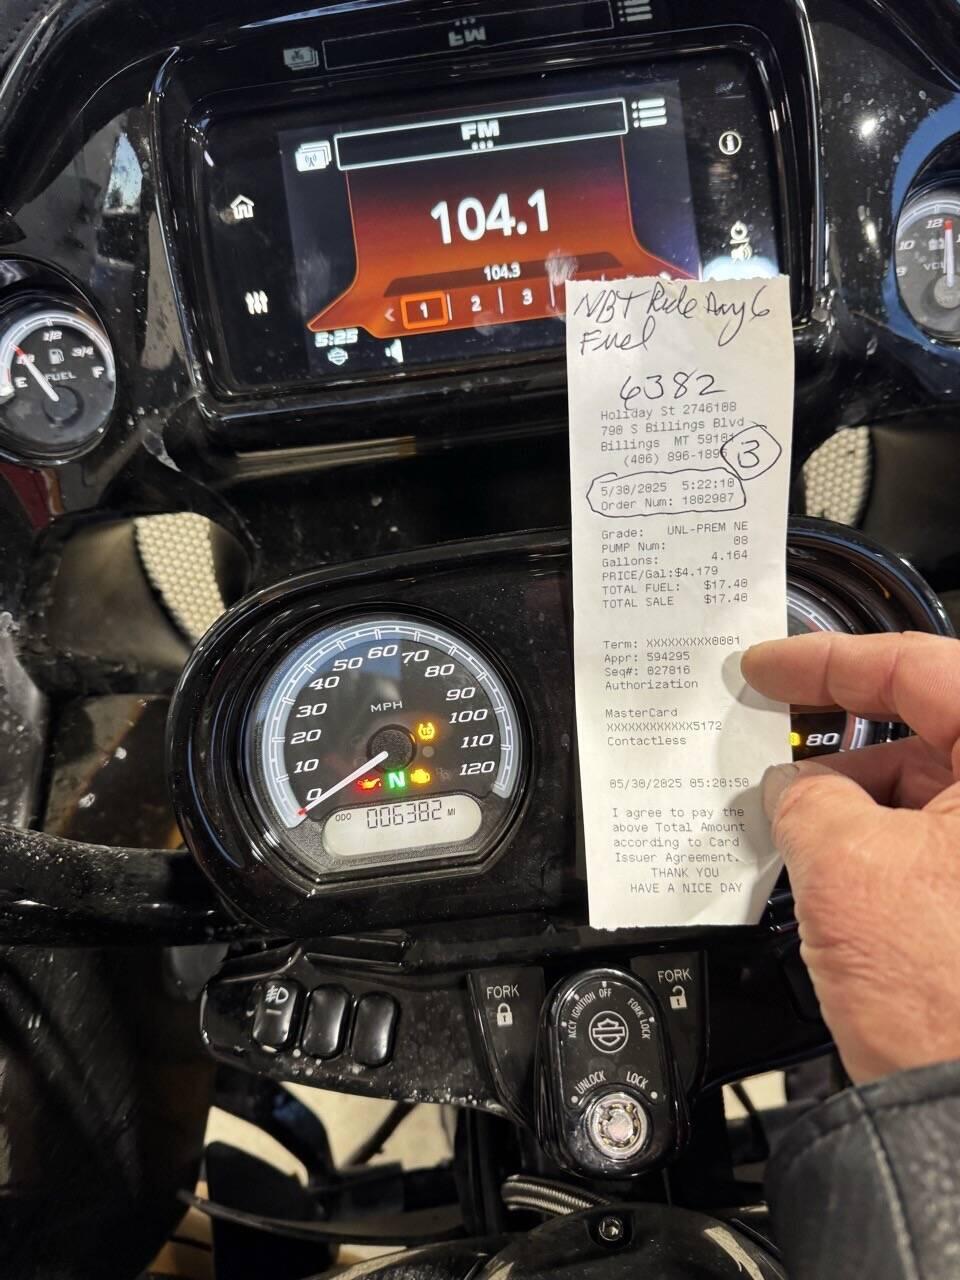 FM
FM
104.1
104.3
1 2 3
5:25
1/2
3/4
E FUEL F
12
10
NBT Ride Day 6
Fuel
6382
Holiday St 2746108
790 S Billings Blvd
Billings MT 59101
(406) 896-1896
3
5/30/2025 5:22:10
Order Num: 1802987
Grade: UNL-PREM NE
PUMP Num: 08
Gallons: 4.164
PRICE/Gal:$4.179
TOTAL FUEL: $17.40
TOTAL SALE $17.40
Term: XXXXXXXXX0001
Appr: 594295
Seq#: 027816
Authorization
MasterCard
XXXXXXXXXXXX5172
Contactless
05/30/2025 05:20:50
I agree to pay the
above Total Amount
according to Card
Issuer Agreement.
THANK YOU
HAVE A NICE DAY
0 10 20 30 40 50 60 70 80 90 100 110 120
MPH
N
ODO 006382 MI
80
FORK
FORK
ACCY IGNITION OFF FORK LOCK
UNLOCK LOCK